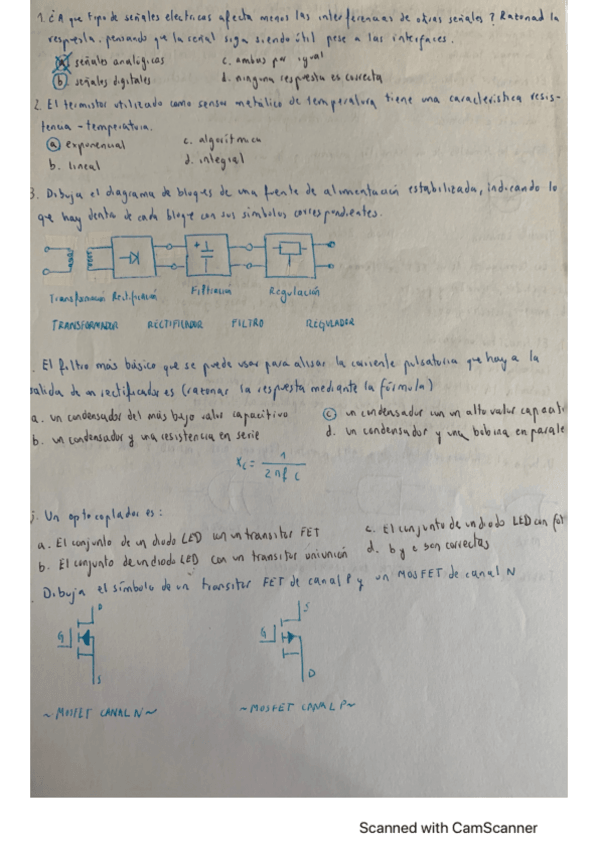 1. ¿A que tipo de señales electricas afecta menos las interferencias de otras señales? Ratonad la
respuesta, pensando que la señal siga siendo útil pese a las interfaces.
a. señales analógicas
c. ambas por igual
b. señales digitales
d. ninguna respuesta es correcta
2. El termistor utilizado como sensor metálico de temperatura tiene una característica resis-
tencia - temperatura.
a exponencial
c. algorítmica
b. lineal
d. integral
3. Dibuja el diagrama de bloques de una fuente de alimentación estabilizada, indicando lo
que hay dentro de cada bloque con sus símbolos correspondientes.
+
Transformación Rectificación Filtración Regulación
TRANSFORMADOR RECTIFICADOR FILTRO REGULADOR
. El filtro más básico que se puede usar para alisar la corriente pulsatoria que hay a la
salida de un rectificador es (ratonar la respuesta mediante la fórmula)
a. un condensador del más bajo valor capacitivo
c un condensador con un alto valor capaciti
b. un condensador y una resistencia en serie
d. un condensador y una bobina en parale
Xc = 1 / 2πf c
. Un optocoplador es:
a. El conjunto de un diodo LED con un transitor FET
c. El conjunto de un diodo LED con fot
b. El conjunto de un diodo LED con un transitor uniunión
d. b y c son correctas
. Dibuja el símbolo de un transitor FET de canal P y un MOSFET de canal N
D
G
S
S
G
D
~ MOSFET CANAL N ~
~ MOSFET CANAL P ~
Scanned with CamScanner